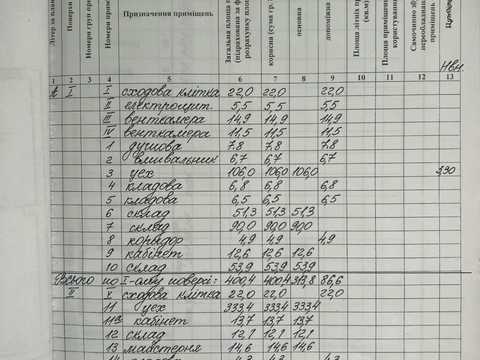 Літер за план
Поверхи
Номери груп при
Номери прим
Призначення приміщень
Загальна площа
(підрахована за ф
розрахунку площ
корисна (сума гр.
основна
допоміжна
Площа літніх пр
(кв.м)
Площа приміщення
користування
Самочинно зб
переобладнан
приміщень
Нвн.
1 2 3 4 5 6 7 8 9 10 11 12 13
А І І сходова клітка 22,0 22,0 22,0
ІІ електрощит. 5,5 5,5 5,5
ІІІ венткамера 14,9 14,9 14,9
IV венткамера 11,5 11,5 11,5
1 душова 7.8 7.8 7.8
2 вмивальник 6,7 6,7 6,7
3 цех 106,0 106,0 106,0 3,90
4 кладова 6,8 6,8 6,8
5 кладова 6,5 6,5 6,5
6 склад 51,3 51,3 51,3
7 склад 90,0 90,0 90,0
8 коридор 4,9 4,9 4,9
9 кабінет 12,6 12,6 12,6
10 склад 53,9 53,9 53,9
Всього по І-ому поверсі: 400,4 400,4 313,8 86,6
ІІ V сходова клітка 22,0 22,0 22,0
11 цех 333,4 333,4 333,4
11a кабінет 13,7 13,7 13,7
12 склад 12,1 12,1 12,1
13 майстерня 14,6 14,6 14,6